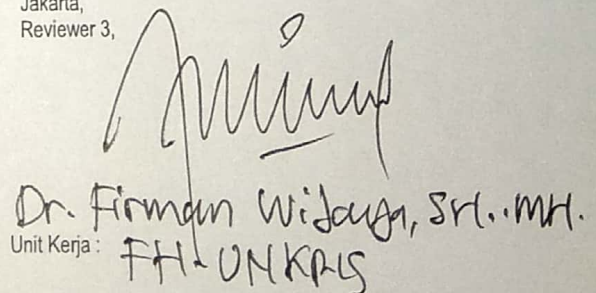 Jakarta,
Reviewer 3,
Dr. Firman Wijaya, SH., MH.
Unit Kerja : FH-UNKRIS